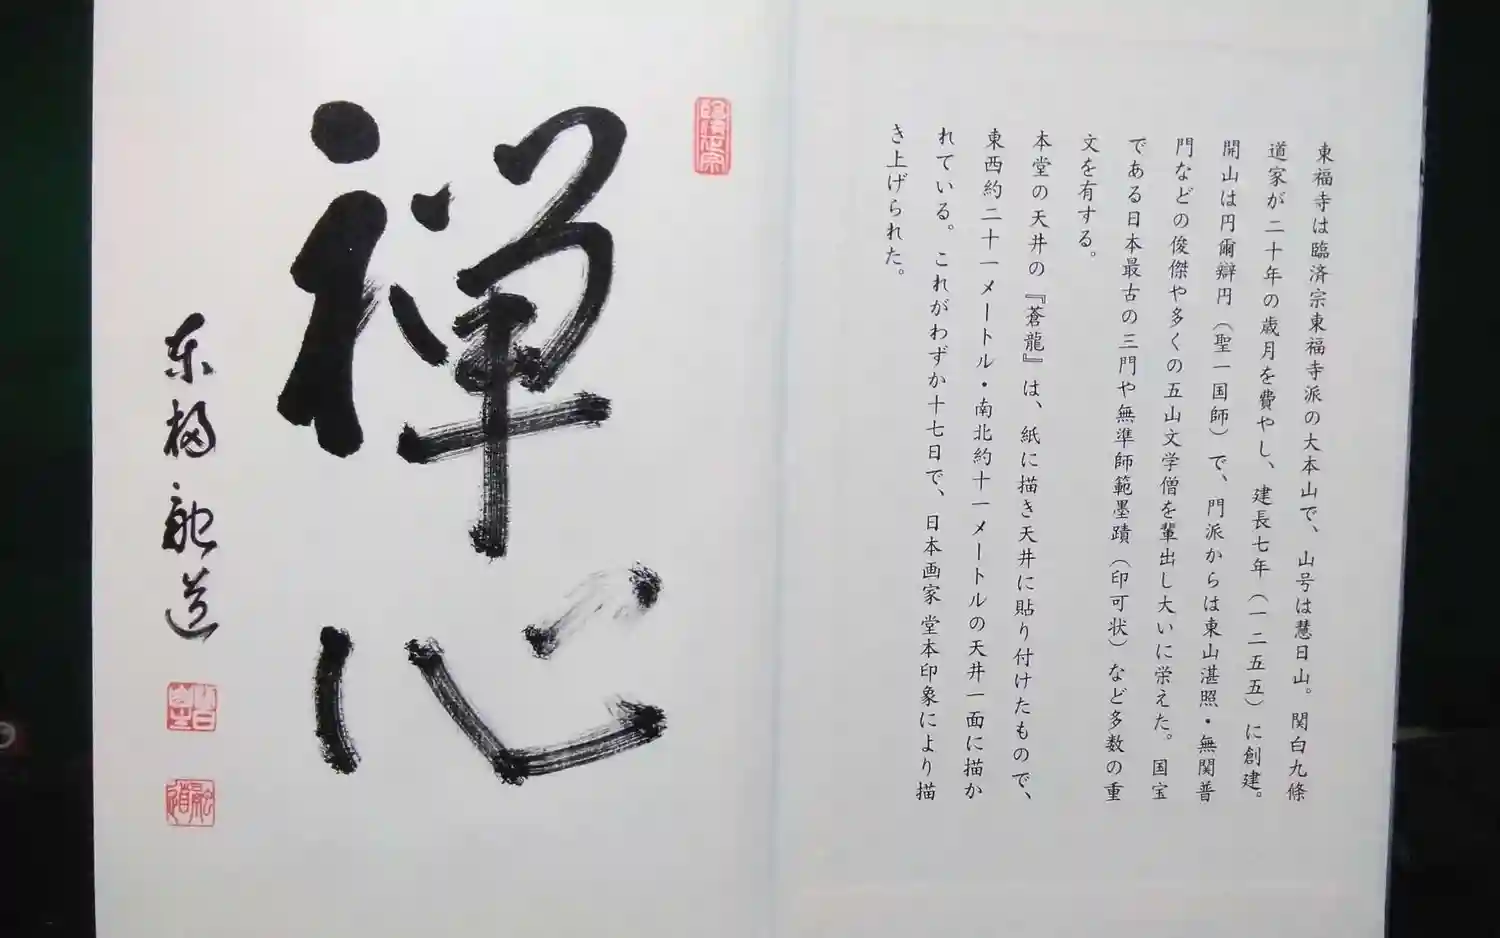 東福寺は臨済宗東福寺派の大本山で、山号は慧日山。関白九條
道家が二十年の歳月を費やし、建長七年（一二五五）に創建。
開山は円爾辯円（聖一国師）で、門派からは東山湛照・無関普
門などの俊傑や多くの五山文学僧を輩出し大いに栄えた。国宝
である日本最古の三門や無準師範墨蹟（印可状）など多数の重
文を有する。
本堂の天井の『蒼龍』は、紙に描き天井に貼り付けたもので、
東西約二十一メートル・南北約十一メートルの天井一面に描か
れている。これがわずか十七日で、日本画家 堂本印象により描
き上げられた。
臨済正宗
禅心
東福融道
融道